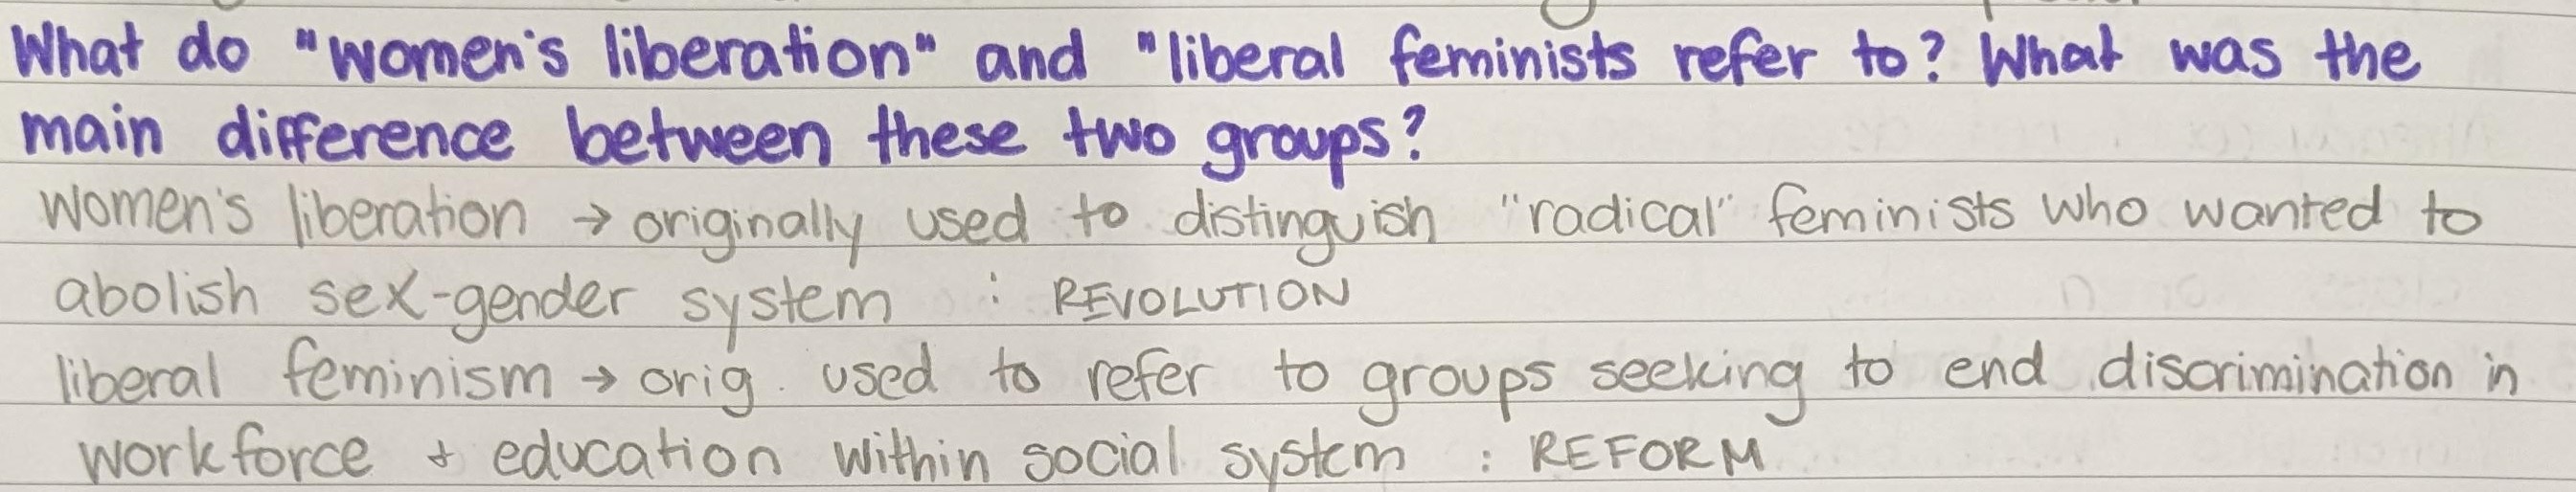 What do "women's liberation" and "liberal feminists refer to? What was the
main difference between these two groups?
women's liberation → originally used to distinguish "radical" feminists who wanted to
abolish sex-gender system : REVOLUTION
liberal feminism → orig. used to refer to groups seeking to end discrimination in
workforce + education within social system : REFORM